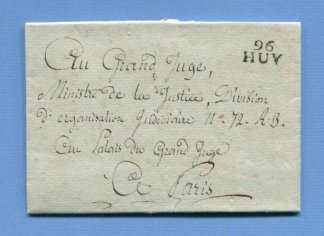 96
HUY
Au Grand Juge,
Ministre de la Justice, Division
D'organisation Judiciaire N.º 72. A.B.
Au Palais du Grand Juge
A Paris